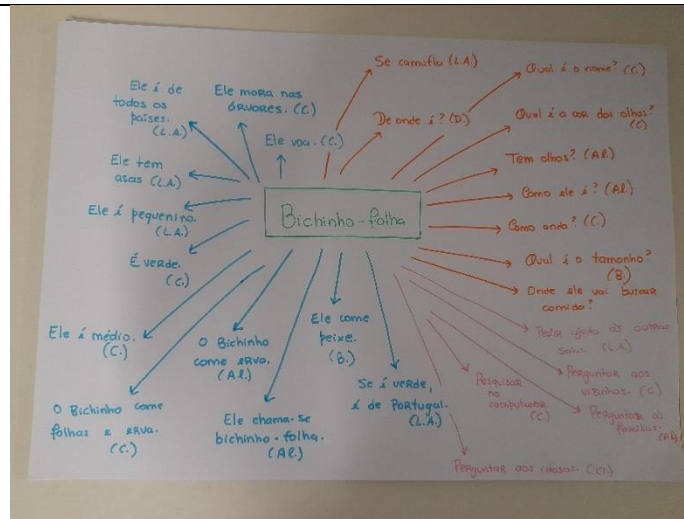 Bichinho-folha
Ele é de
todos os
países.
(L.A.)
Ele mora nas
árvores. (C.)
Ele voa. (C.)
Ele tem
asas (L.A.)
Ele é pequenino.
(L.A.)
É verde.
(C.)
Ele é médio.
(C.)
O Bichinho come
folhas e erva.
(C.)
O Bichinho
come erva.
(Al.)
Ele chama-se
bichinho-folha.
(Al.)
Ele come
peixe.
(B.)
Se é verde,
é de Portugal.
(L.A.)
Se camufla (L.A.)
De onde é? (D.)
Qual é o nome? (C.)
Qual é a cor dos olhos?
(C)
Tem olhos? (Al.)
Como ele é? (Al.)
Como anda? (C.)
Qual é o tamanho?
(B.)
Onde ele vai buscar
comida?
Pedir ajuda às outras
salas. (L.A.)
Perguntar aos
vizinhos. (C)
Perguntar às
famílias.
Pesquisar
no
computador
(C.)
Perguntar aos idosos.